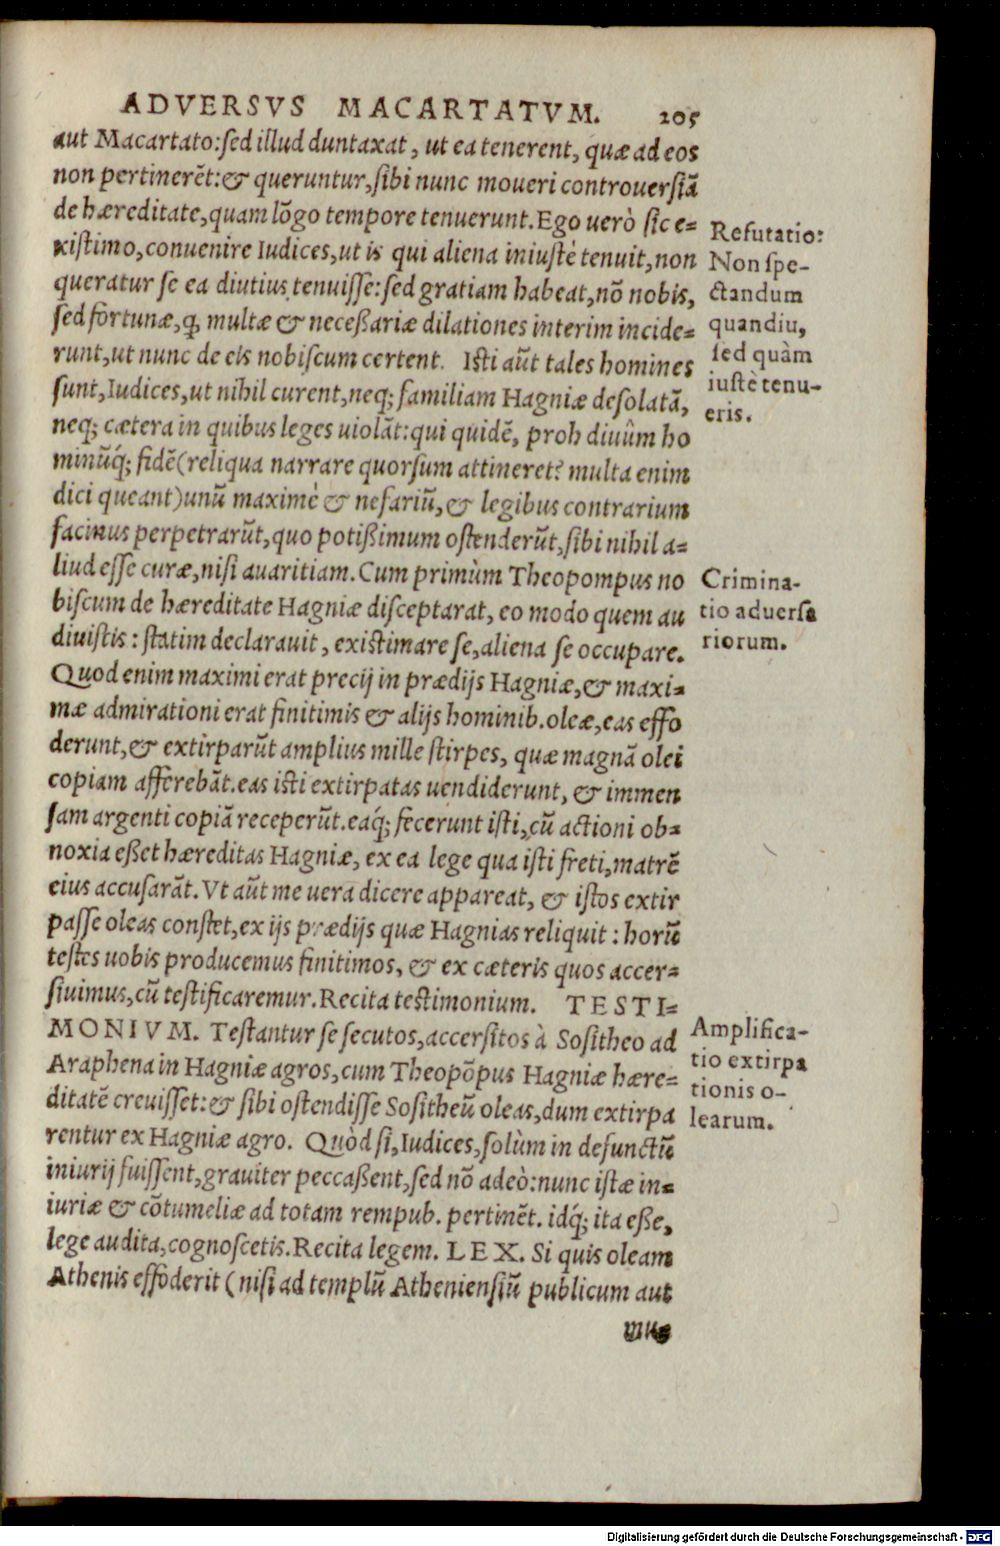 ADVERSVS MACARTATVM. 205
aut Macartato: sed illud duntaxat, ut ea tenerent, quæ ad eos
non pertinerẽt: & queruntur, sibi nunc moueri controuersiã
de hæreditate, quam lõgo tempore tenuerunt. Ego uerò sic e=
xistimo, conuenire Iudices, ut is qui aliena iniustè tenuit, non
queratur se ea diutius tenuisse: sed gratiam habeat, nõ nobis,
sed fortunæ, ꝙ multæ & neceßariæ dilationes interim incide=
runt, ut nunc de eis nobiscum certent. Isti aũt tales homines
sunt, Iudices, ut nihil curent, neq; familiam Hagniæ desolatã,
neq; cætera in quibus leges uiolãt: qui quidẽ, proh diuûm ho
minũq́; fidẽ (reliqua narrare quorsum attineret? multa enim
dici queant) unũ maximè & nefariũ, & legibus contrarium
facinus perpetrarũt, quo potißimum ostenderũt, sibi nihil a=
liud esse curæ, nisi auaritiam. Cum primùm Theopompus no
biscum de hæreditate Hagniæ disceptarat, eo modo quem au
diuistis: statim declarauit, existimare se, aliena se occupare.
Quod enim maximi erat precij in prædijs Hagniæ, & maxi=
mæ admirationi erat finitimis & alijs hominib. oleæ, eas effo
derunt, & extirparũt amplius mille stirpes, quæ magnã olei
copiam afferebãt. eas isti extirpatas uendiderunt, & immen
sam argenti copiã receperũt. eaq́; fecerunt isti, cũ actioni ob=
noxia eßet hæreditas Hagniæ, ex ea lege qua isti freti, matrẽ
eius accusarãt. Vt aũt me uera dicere appareat, & istos extir
passe oleas constet, ex ijs prædijs quæ Hagnias reliquit: horũ
testes uobis producemus finitimos, & ex cæteris quos accer=
siuimus, cũ testificaremur. Recita testimonium. TESTI=
MONIVM. Testantur se secutos, accersitos à Sositheo ad
Araphena in Hagniæ agros, cum Theopõpus Hagniæ hære=
ditatẽ creuisset: & sibi ostendisse Sositheũ oleas, dum extirpa
rentur ex Hagniæ agro. Quòd si, Iudices, solùm in defunctũ
iniurij fuissent, grauiter peccaßent, sed nõ adeò: nunc istæ in=
iuriæ & cõtumeliæ ad totam rempub. pertinẽt. idq́; ita eße,
lege audita, cognoscetis. Recita legem. LEX. Si quis oleam
Athenis effoderit (nisi ad templũ Atheniensiũ publicum aut
Refutatio:
Non spe-
ctandum
quandiu,
sed quàm
iustè tenu-
eris.
Crimina-
tio aduersa
riorum.
Amplifica-
tio extirpa
tionis o-
learum.
Digitalisierung gefördert durch die Deutsche Forschungsgemeinschaft - DFG